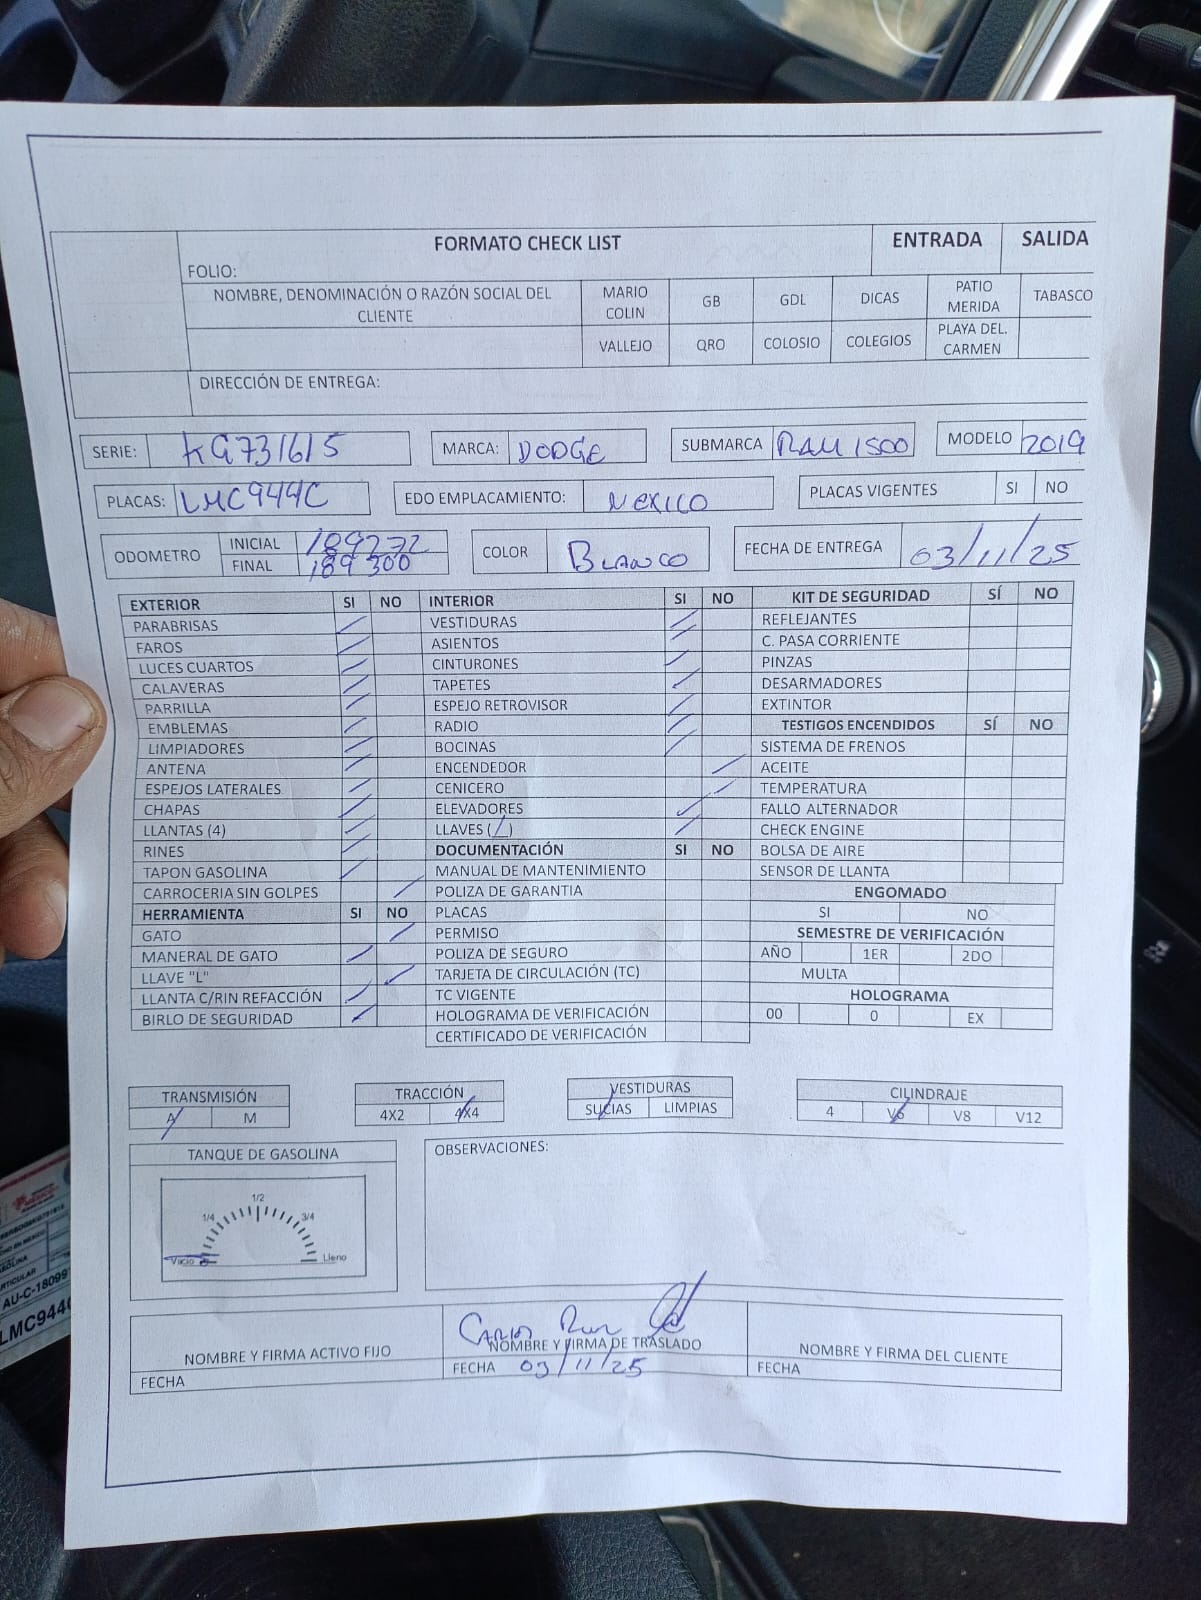 FORMATO CHECK LIST ENTRADA SALIDA
FOLIO:
NOMBRE, DENOMINACIÓN O RAZÓN SOCIAL DEL CLIENTE MARIO COLIN GB GDL DICAS PATIO MERIDA TABASCO
VALLEJO QRO COLOSIO COLEGIOS PLAYA DEL. CARMEN
DIRECCIÓN DE ENTREGA:
SERIE: KG731615 MARCA: DODGE SUBMARCA RAM 1500 MODELO 2019
PLACAS: LMC944C EDO EMPLACAMIENTO: MEXICO PLACAS VIGENTES SI NO
ODOMETRO INICIAL 189272 COLOR BLANCO FECHA DE ENTREGA 03/11/25
FINAL 189300
EXTERIOR SI NO INTERIOR SI NO KIT DE SEGURIDAD SÍ NO
PARABRISAS VESTIDURAS REFLEJANTES
FAROS ASIENTOS C. PASA CORRIENTE
LUCES CUARTOS CINTURONES PINZAS
CALAVERAS TAPETES DESARMADORES
PARRILLA ESPEJO RETROVISOR EXTINTOR
EMBLEMAS RADIO TESTIGOS ENCENDIDOS SÍ NO
LIMPIADORES BOCINAS SISTEMA DE FRENOS
ANTENA ENCENDEDOR ACEITE
ESPEJOS LATERALES CENICERO TEMPERATURA
CHAPAS ELEVADORES FALLO ALTERNADOR
LLANTAS (4) LLAVES (1) CHECK ENGINE
RINES DOCUMENTACIÓN SI NO BOLSA DE AIRE
TAPON GASOLINA MANUAL DE MANTENIMIENTO SENSOR DE LLANTA
CARROCERIA SIN GOLPES POLIZA DE GARANTIA ENGOMADO
HERRAMIENTA SI NO PLACAS SI NO
GATO PERMISO SEMESTRE DE VERIFICACIÓN
MANERAL DE GATO POLIZA DE SEGURO AÑO 1ER 2DO
LLAVE "L" TARJETA DE CIRCULACIÓN (TC) MULTA
LLANTA C/RIN REFACCIÓN TC VIGENTE HOLOGRAMA
BIRLO DE SEGURIDAD HOLOGRAMA DE VERIFICACIÓN 00 0 EX
CERTIFICADO DE VERIFICACIÓN
TRANSMISIÓN TRACCIÓN VESTIDURAS CILINDRAJE
A M 4X2 4X4 SUCIAS LIMPIAS 4 V6 V8 V12
TANQUE DE GASOLINA OBSERVACIONES:
1/2
1/4 3/4
Vacio Lleno
CARLOS
NOMBRE Y FIRMA ACTIVO FIJO NOMBRE Y FIRMA DE TRASLADO NOMBRE Y FIRMA DEL CLIENTE
FECHA FECHA 03/11/25 FECHA
PARTICULAR
AU-C-18099
LMC944